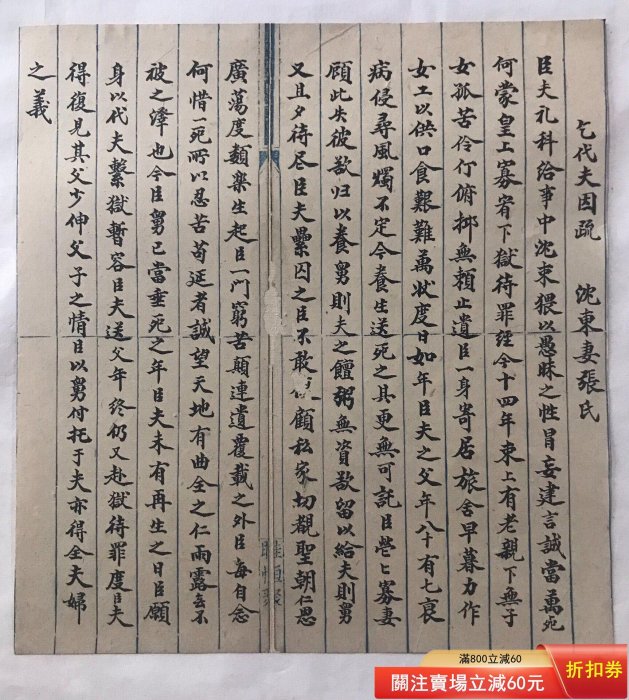 乞代夫囚疏 沈東妻張氏
臣夫礼科给事中沈束猥以愚昧之性冒妄建言誠當萬死
何蒙皇上寡宥下獄待罪經今十四年束上有老親下無子
女孤苦伶仃俯揶無頼止遺臣一身寄居旅舍早暮力作
女工以供口食艱難萬狀度日如年臣夫之父年八十有七哀
病侵尋風燭不定今養生送死之具更無可託臣茕匕寡妻
顧此失彼欲归以養舅則夫之饘粥無資欲留以給夫則舅
又且夕待尽臣夫纍囚之臣不敢顧私家切覩聖朝仁恩
廣蕩度類樂生起臣一門窮苦顛連遺覆載之外臣每自念
何惜一死所以忍苦苟延者誠望天地有曲全之仁雨露无不
被之澤也今臣舅已當垂死之年臣夫未有再生之日臣願
身以代夫繫獄暫容臣夫送父年终仍又赴獄待罪度臣夫
得復見其父少伸父子之情臣以舅付托于夫亦得全夫婦
之義
滿800立減60
關注賣場立減60元
折扣券